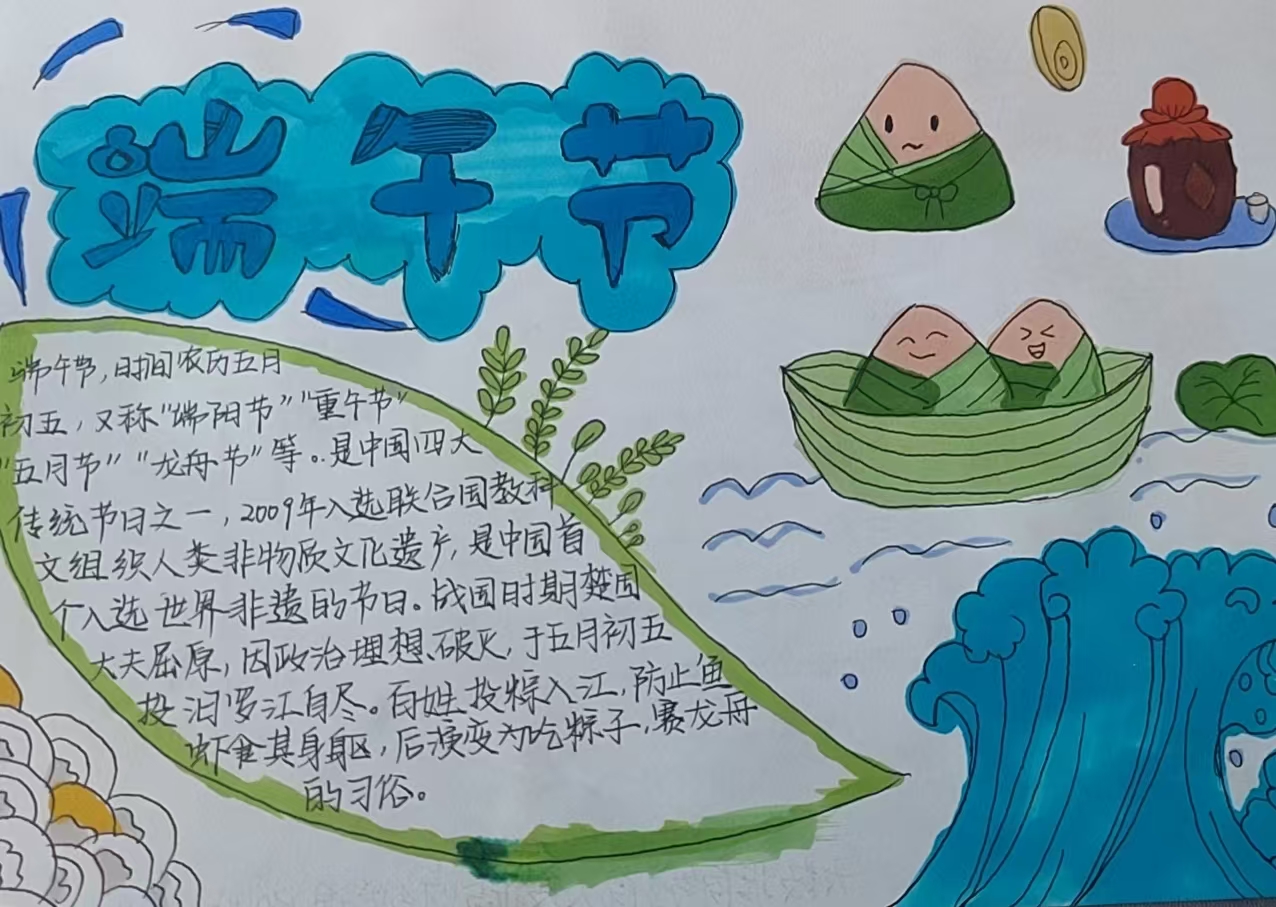 端午节
端午节，时间农历五月
初五，又称“端阳节”“重午节”
“五月节”“龙舟节”等。是中国四大
传统节日之一，2009年入选联合国教科
文组织人类非物质文化遗产，是中国首
个入选世界非遗的节日。战国时期楚国
大夫屈原，因政治理想破灭，于五月初五
投汨罗江自尽。百姓投粽入江，防止鱼
虾食其身躯，后演变为吃粽子，赛龙舟
的习俗。